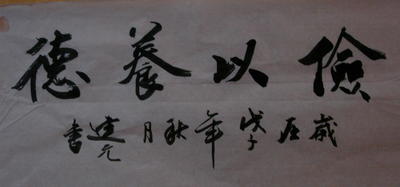 儉以養德
歲在戊子年秋月建元書